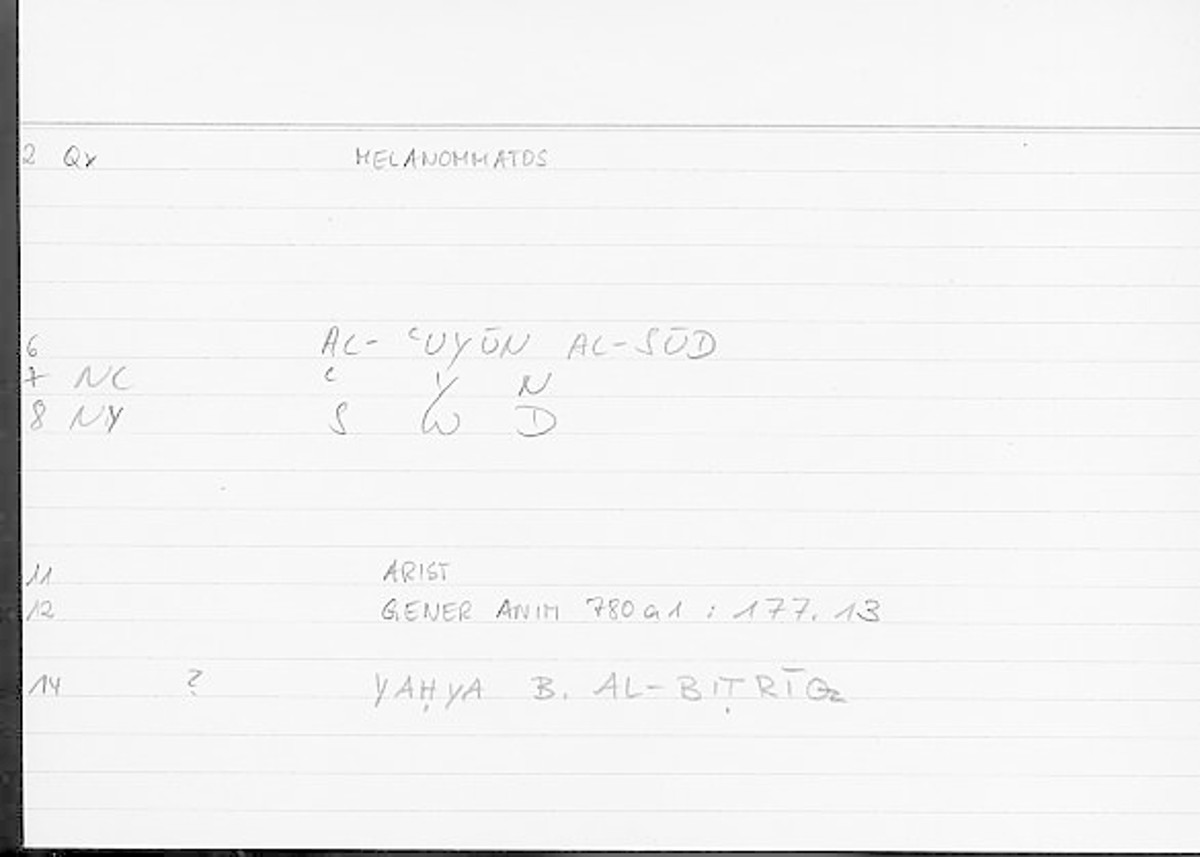 2 Qy MELANOMMATOS
6 AL-ʿUYŪN AL-SŪD
7 NC ʿ Y N
8 NY S W D
11 ARIST
12 GENER ANIM 780a1 : 177.13
14 ? YAḤYA B. AL-BIṬRĪQ